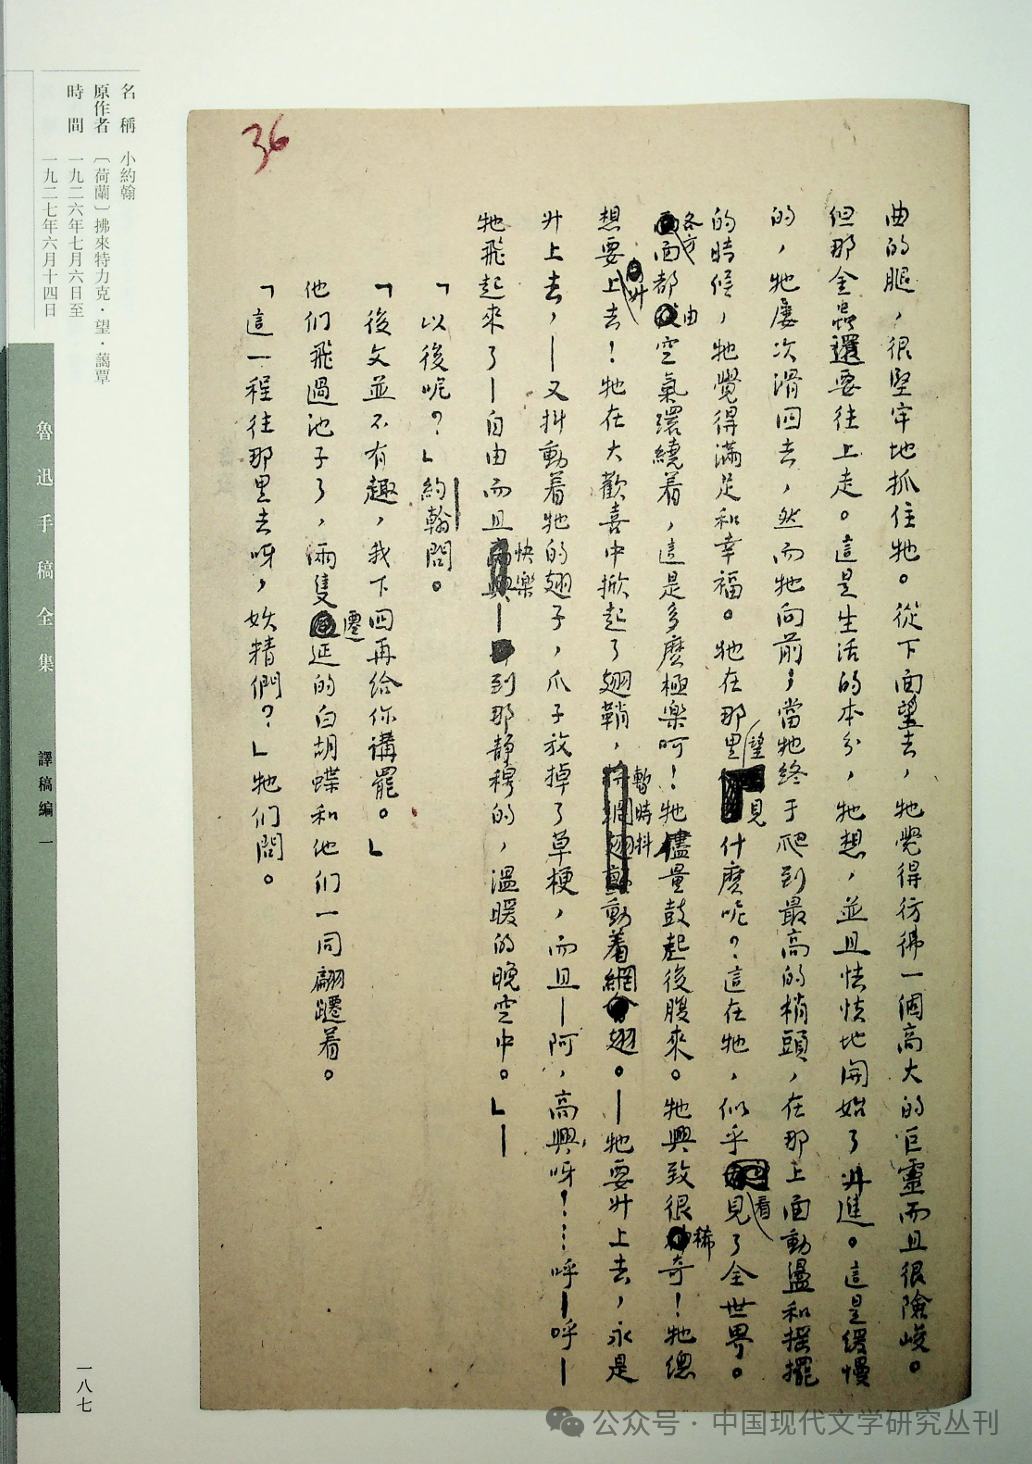 36
曲的腿，很堅牢地抓住牠。從下面望去，牠覺得彷彿一個高大的巨靈而且很險峻。
但那金蟲還要往上走。這是生活的本分，牠想，並且怯怯地開始了升進。這是緩慢
的，牠屢次滑回去，然而牠向前；當牠終于爬到最高的梢頭，在那上面動盪和摇擺
的時候，牠覺得滿足和幸福。牠在那里望見什麼呢？這在牠，似乎看見了全世界。
各方面都由空氣環繞着，這是多麼極樂呵！牠儘量鼓起後腹來。牠興致很稀奇！牠總
想要升上去！牠在大歡喜中掀起了翅鞘，暫時抖動着網翅。—牠要升上去，永是
升上去，—又抖動着牠的翅子，爪子放掉了草梗，而且—阿，高興呀！⋯呼—呼—
牠飛起來了—自由而且快樂—到那靜穆的，温暖的晚空中。」—
「以後呢？」約翰問。
「後文並不有趣，我下回再給你講罷。」
他们飛過池子了，兩隻遷延的白胡蝶和他们一同翩躚着。
「這一程往那里去呀，妖精們？」牠们問。
名稱 小約翰
原作者 〔荷蘭〕拂來特力克·望·藹覃
時間 一九二六年七月六日至
一九二七年六月十四日
魯迅手稿全集 譯稿編 一
一八七
公众号·中国现代文学研究丛刊